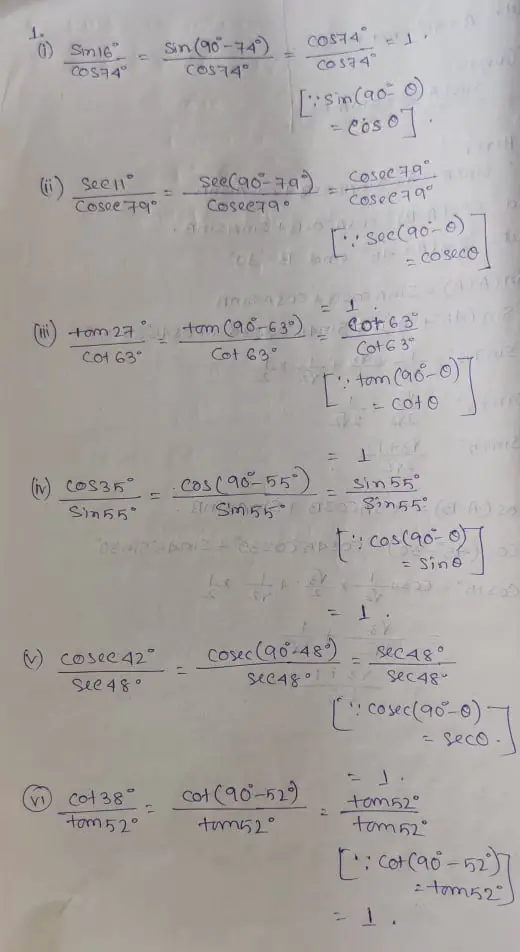 1.
(i) sin16°/cos74° = sin(90°-74°)/cos74° = cos74°/cos74° = 1.
[∵ sin(90°-θ)
= cosθ].
(ii) sec11°/cosec79° = sec(90°-79°)/cosec79° = cosec79°/cosec79°
[∵ sec(90°-θ)
= cosecθ]
= 1.
(iii) tan27°/cot63° = tan(90°-63°)/cot63° = cot63°/cot63°
[∵ tan(90°-θ)
= cotθ]
= 1
(iv) cos35°/sin55° = cos(90°-55°)/sin55° = sin55°/sin55°
[∵ cos(90°-θ)
= sinθ]
= 1.
(v) cosec42°/sec48° = cosec(90°-48°)/sec48° = sec48°/sec48°
[∵ cosec(90°-θ)
= secθ.]
= 1.
(vi) cot38°/tan52° = cot(90°-52°)/tan52° = tan52°/tan52°
[∵ cot(90°-52°)
= tan52°]
= 1.